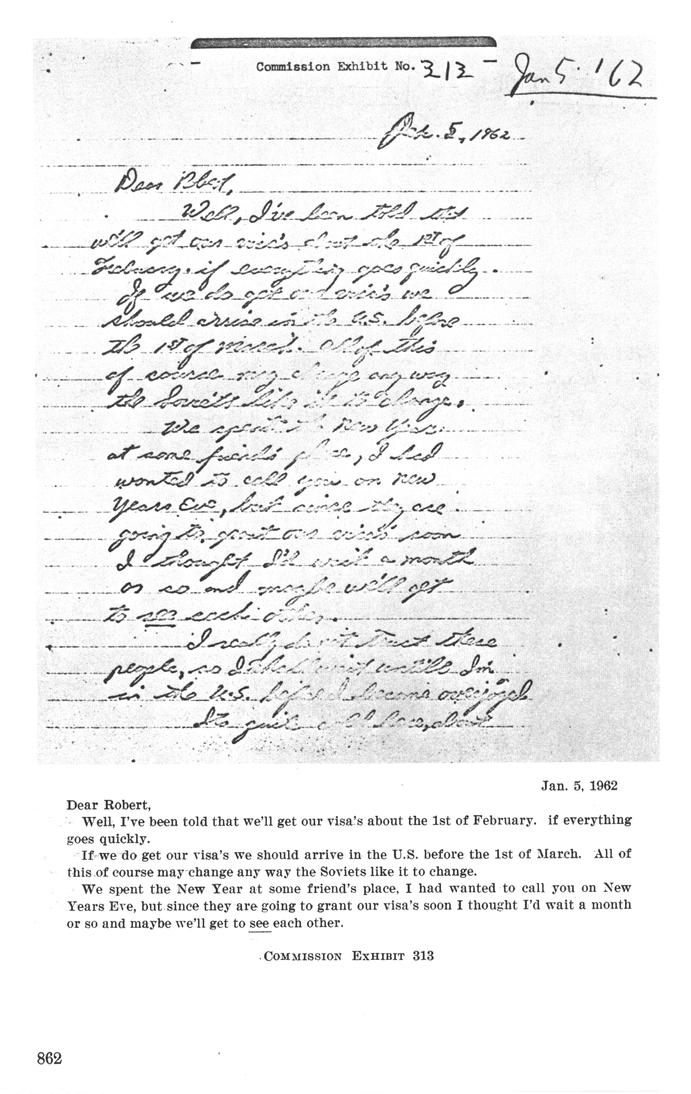 Commission Exhibit No. 313
Jan 5. '62
Jan. 5, 1962
Dear Robert,
Well, I've been told that
we'll get our visa's about the 1st of
February. if everything goes quickly.
If we do get our visa's we
should arrive in the U.S. before
the 1st of March. All of this
of course may change any way
the Soviets like it to change.
We spent the New Year
at some friends place, I had
wanted to call you on New
Years Eve, but since they are
going to grant our visa's soon
I thought I'll wait a month
or so and maybe we'll get
to see each other.
I really do not trust these
people, so I shall wait untill I'm
in the U.S. before I become overjoyed
Its quite cold here, about
Jan. 5, 1962
Dear Robert,
Well, I've been told that we'll get our visa's about the 1st of February. if everything
goes quickly.
If we do get our visa's we should arrive in the U.S. before the 1st of March. All of
this of course may change any way the Soviets like it to change.
We spent the New Year at some friend's place, I had wanted to call you on New
Years Eve, but since they are going to grant our visa's soon I thought I'd wait a month
or so and maybe we'll get to see each other.
COMMISSION EXHIBIT 313
862